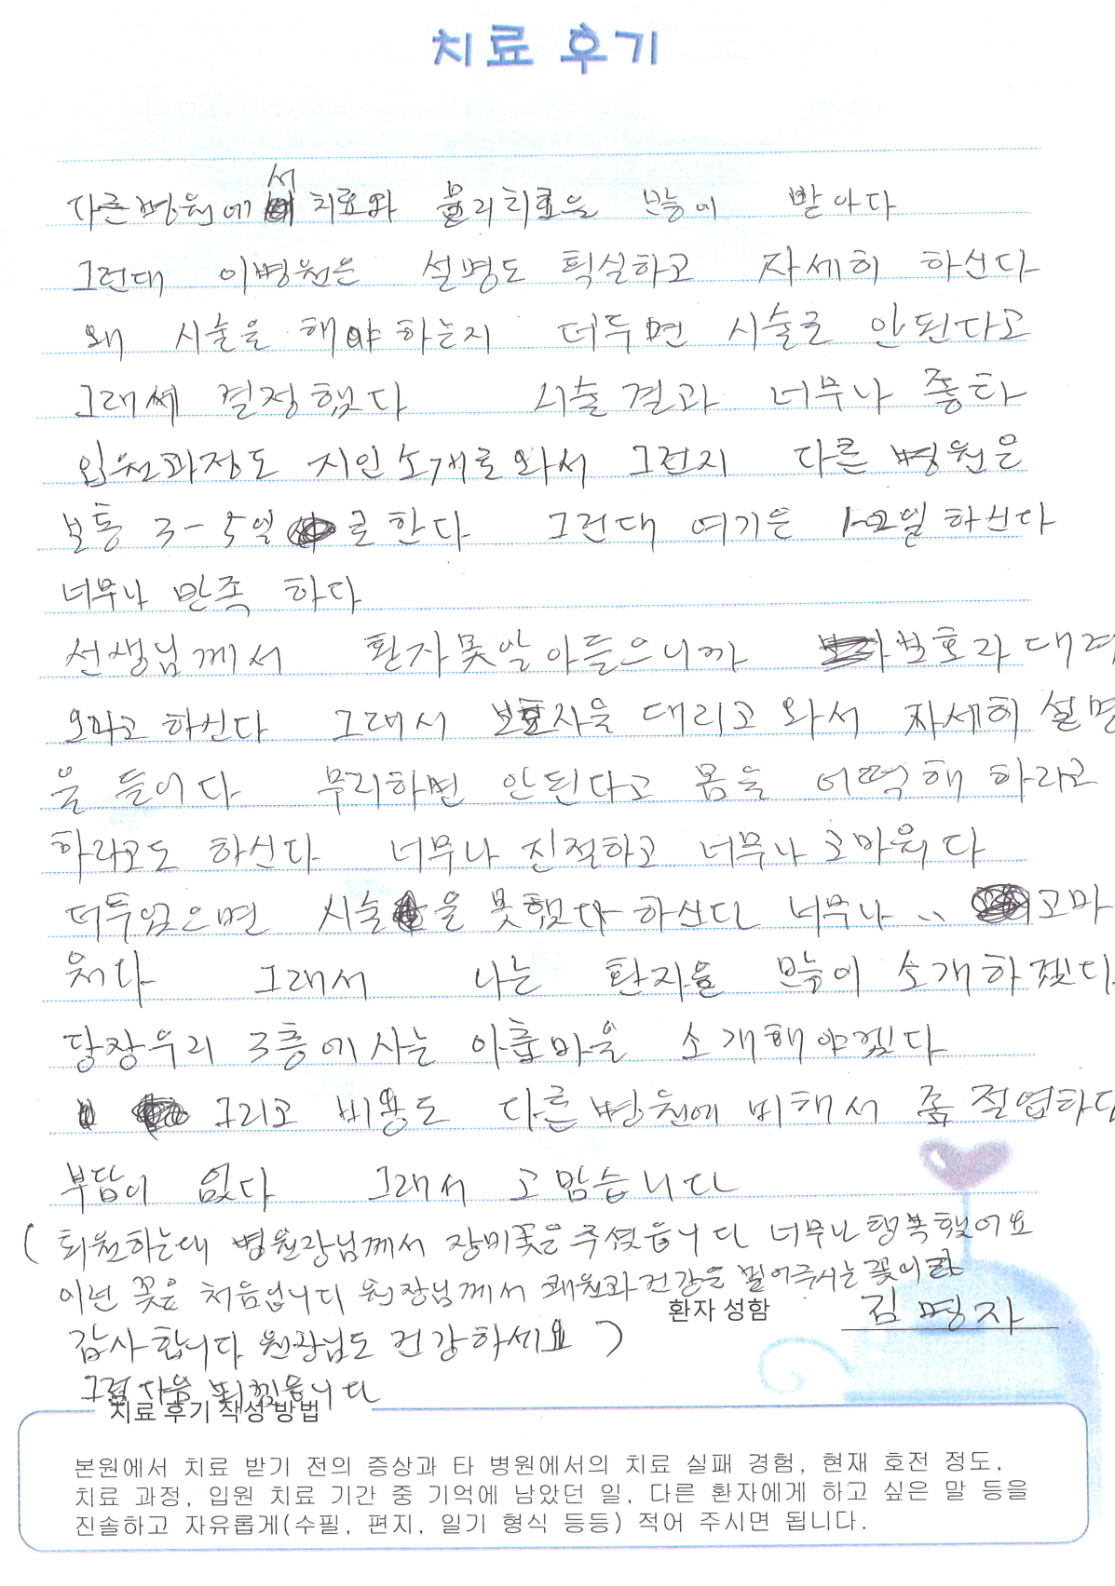 치료 후기
다른병원에서 치료와 물리치료을 많이 받아다
그런대 이병원은 설명도 확실하고 자세히 하신다
왜 시술을 해야하는지 더두면 시술로 안된다고
그래세 결정했다 시술결과 너무나 좋타
입원과정도 지인소개로와서 그런지 다른 병원은
보통 3-5일로한다 그런대 여기은 1-2일하신다
너무나 만족 하다
선생님께서 환자못알아들으니까 보호라대려
오라고 하신다 그래서 보호자을 대리고 와서 자세히 설명
을 들어다 무리하면 안된다고 몸을 어떡해 하라고
하라고도 하신다 너무나 친절하고 너무나 고마워다
더두었으면 시술을 못했다하신다 너무나.. 고마
워다 그래서 나는 환자을 많이 소개하겠다
당장우리 3층에사는 아줌마을 소개해야겠다
그리고 비용도 다른병원에 비해서 좀 절업하다
부담이 없다 그래서 고맙습니다
(퇴원하는대 병원장님께서 장미꽃은주셨읍니다 너무나 행복했어요
이런 꽃은 처음입니다 원장님께서 쾌원과건강을 빌어주시는 꽃이라
감사합니다 원장님도 건강하세요)
환자 성함 김명자
그럼 다음 뵈겠읍니다
치료 후기 작성 방법
본원에서 치료 받기 전의 증상과 타 병원에서의 치료 실패 경험, 현재 호전 정도,
치료 과정, 입원 치료 기간 중 기억에 남았던 일, 다른 환자에게 하고 싶은 말 등을
진솔하고 자유롭게(수필, 편지, 일기 형식 등등) 적어 주시면 됩니다.